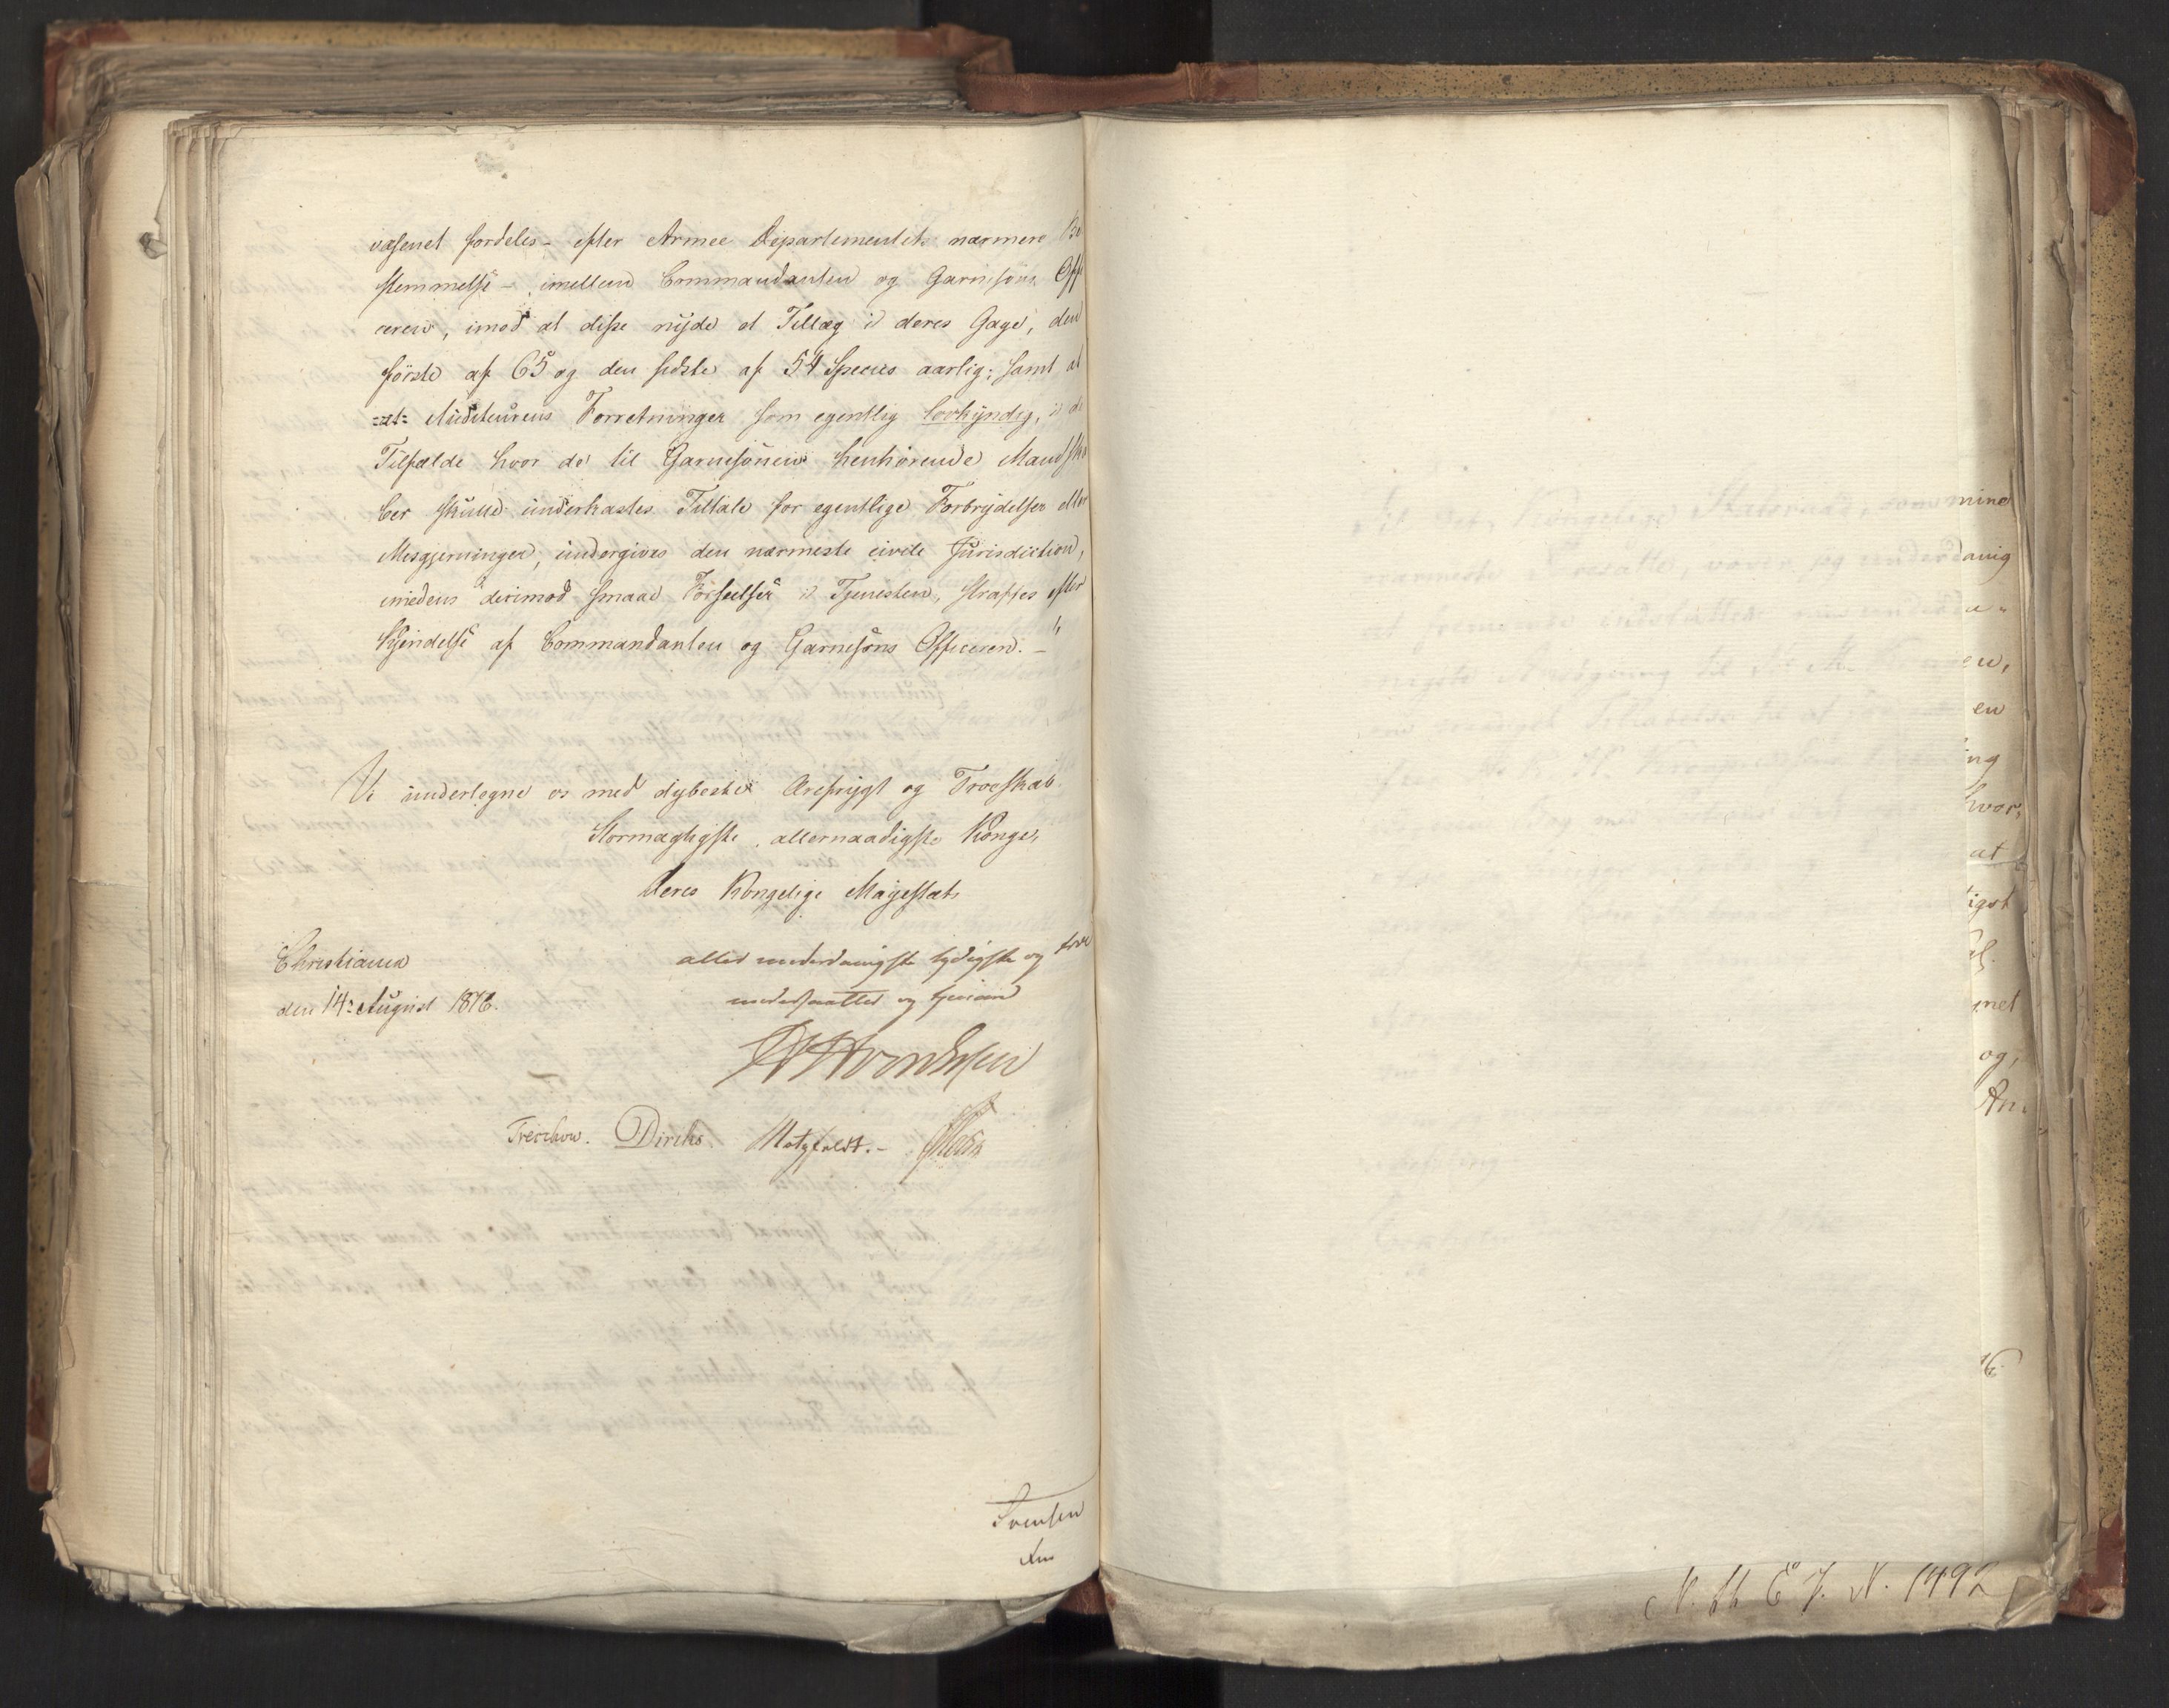 væsenet fordeles – efter Armee Departementets nærmere Be
stemmelse – imellem Commandanten og Garnisons Offi
ceren, imod at disse nyde et Tillæg i deres Gage, den
første af 65 og den sidste af 54 Species aarlig; samt at
=at= Auditeurens Forretninger som egentlig lovkyndig, i de
Tilfælde hvor de til Garnisonen henhørende Mandska
ber skulle underkastes Tiltale for egentlige Forbrydelser eller
Misgjerninger, undergives den nærmeste civile Jurisdiction,
imedens derimod smaae Forseelser i Tjenesten, straffes efter
Kjendelse af Commandanten og Garnisons Officeren. –
Vi undertegne os med dybeste Ærefrygt og Troeskab
Stormægtigste, allernaadigste Konge,
Deres Kongelige Majestæts
Christiania
den 14: August 1816.
allerunderdanigste lydigste og troe
undersaatter og tjenere
Treschow. Diriks. Motzfeldt. –
Svensen
mine
danig
en,
en
ing
hvor,
at
igst
met
og,
An
N. 66 E J. N. 1492